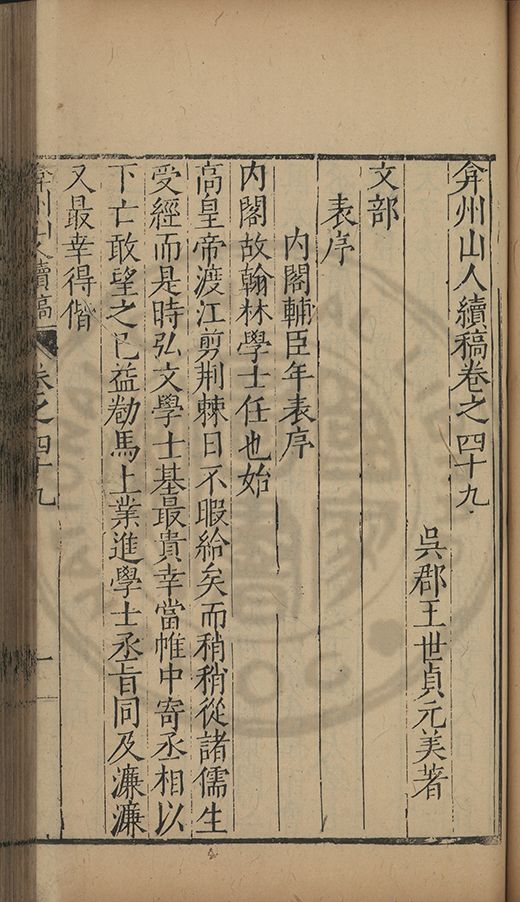 弇州山人續稿卷之四十九
吳郡王世貞元美著
文部
表序
內閣輔臣年表序
內閣故翰林學士任也始
高皇帝渡江剪荆棘日不暇給矣而稍稍從諸儒生
受經而是時弘文學士基最貴幸當帷中寄丞相以
下亡敢望之已益勌馬上業進學士丞旨同及濂濂
又最幸得偕
弇州山人續稿 卷之四十九 一